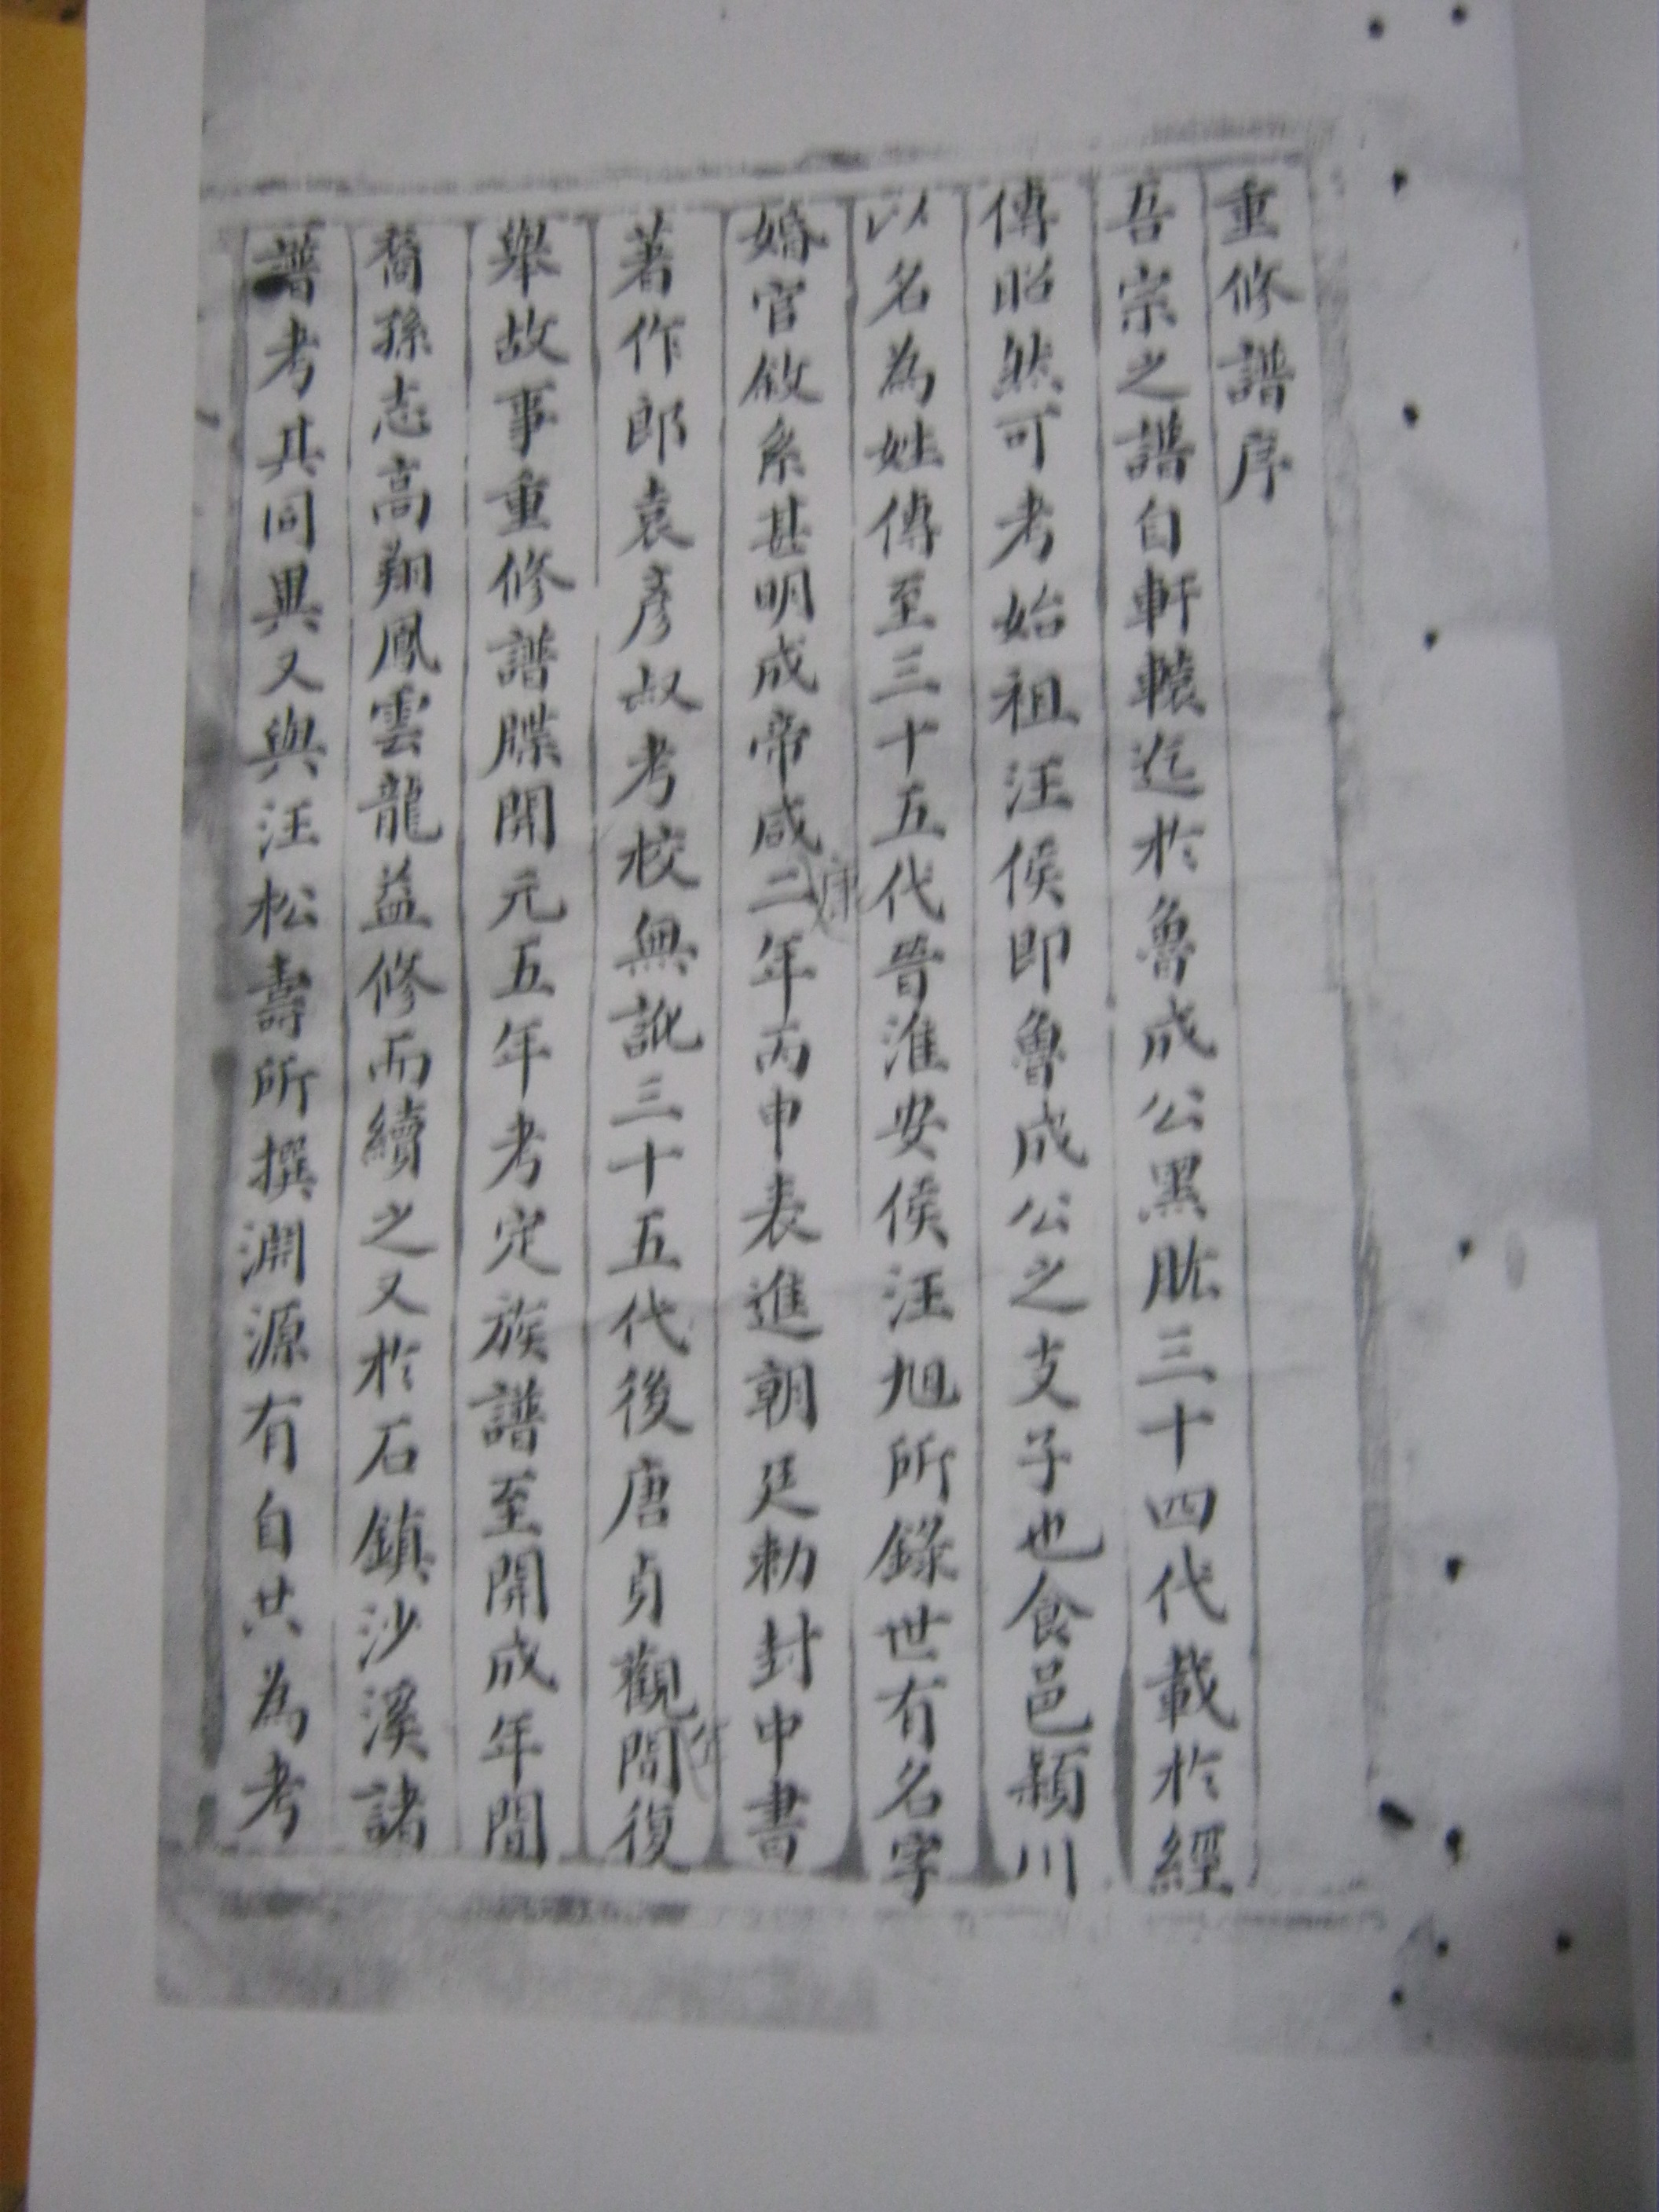 重修譜序
吾宗之譜自軒轅迄於魯成公黑肱三十四代載於經
傳昭然可考始祖汪侯即魯成公之支子也食邑潁川
以名為姓傳至三十五代晉淮安侯汪旭所錄世有名字
婚官敘系甚明成帝咸康二年丙申表進朝廷勅封中書
著作郎袁彥叔考校無訛三十五代後唐貞觀間復
舉故事重修譜牒開元五年考定族譜至開成年間
裔孫志高翔鳳雲龍益修而續之又於石鎮沙溪諸
譜考其同異又與汪松壽所撰淵源有自共為考